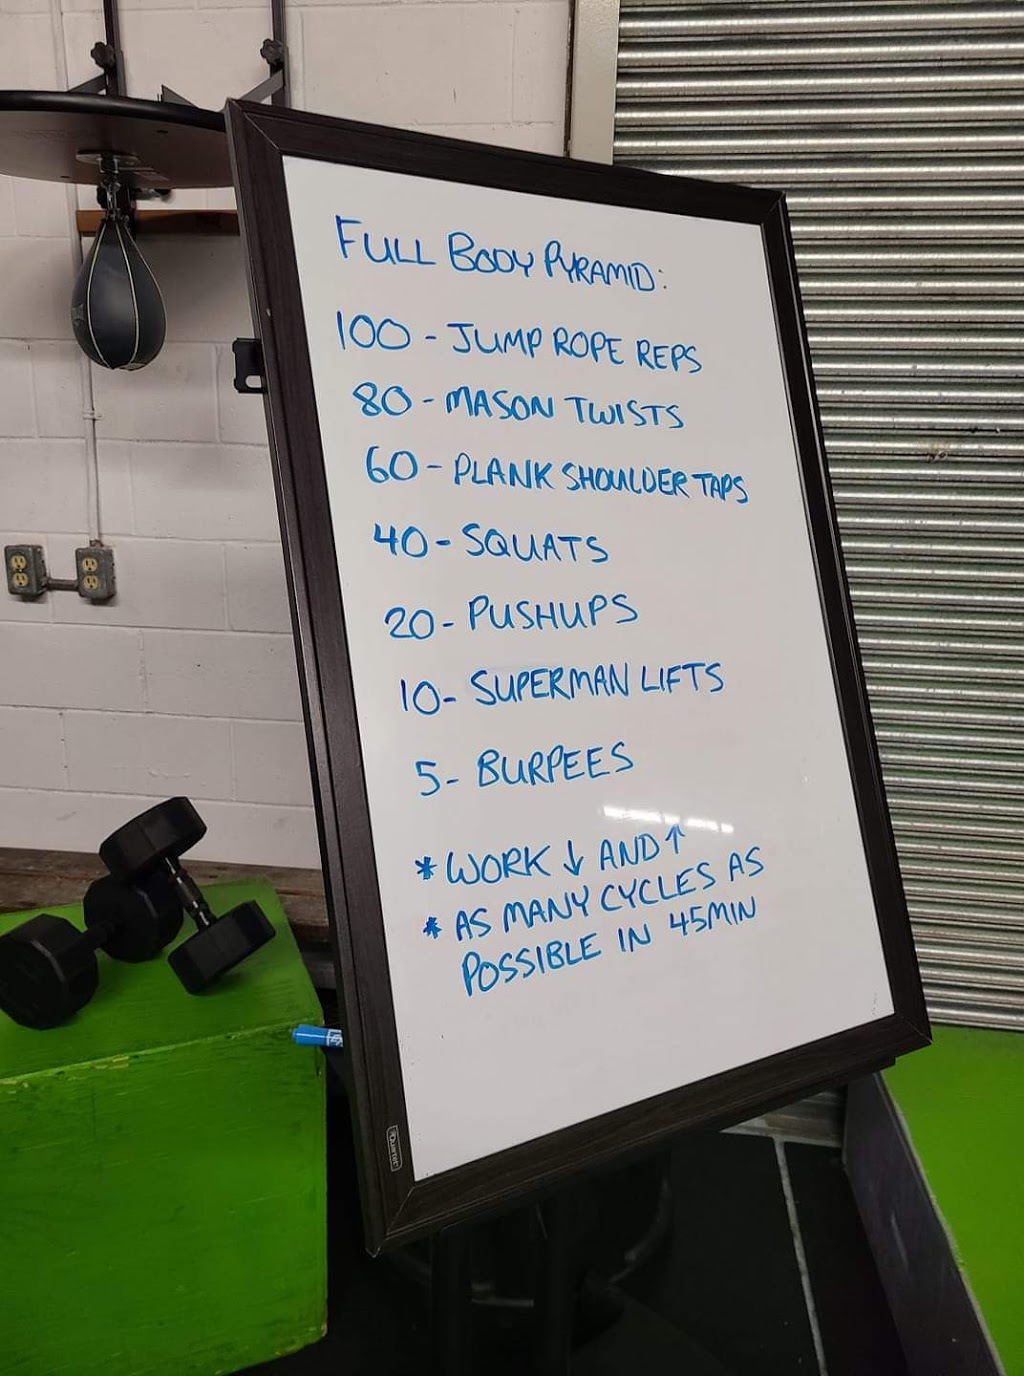 FULL BODY PYRAMID:
100 - JUMP ROPE REPS
80 - MASON TWISTS
60 - PLANK SHOULDER TAPS
40 - SQUATS
20 - PUSHUPS
10 - SUPERMAN LIFTS
5 - BURPEES
* WORK ↓ AND ↑
* AS MANY CYCLES AS
POSSIBLE IN 45MIN
Quartet